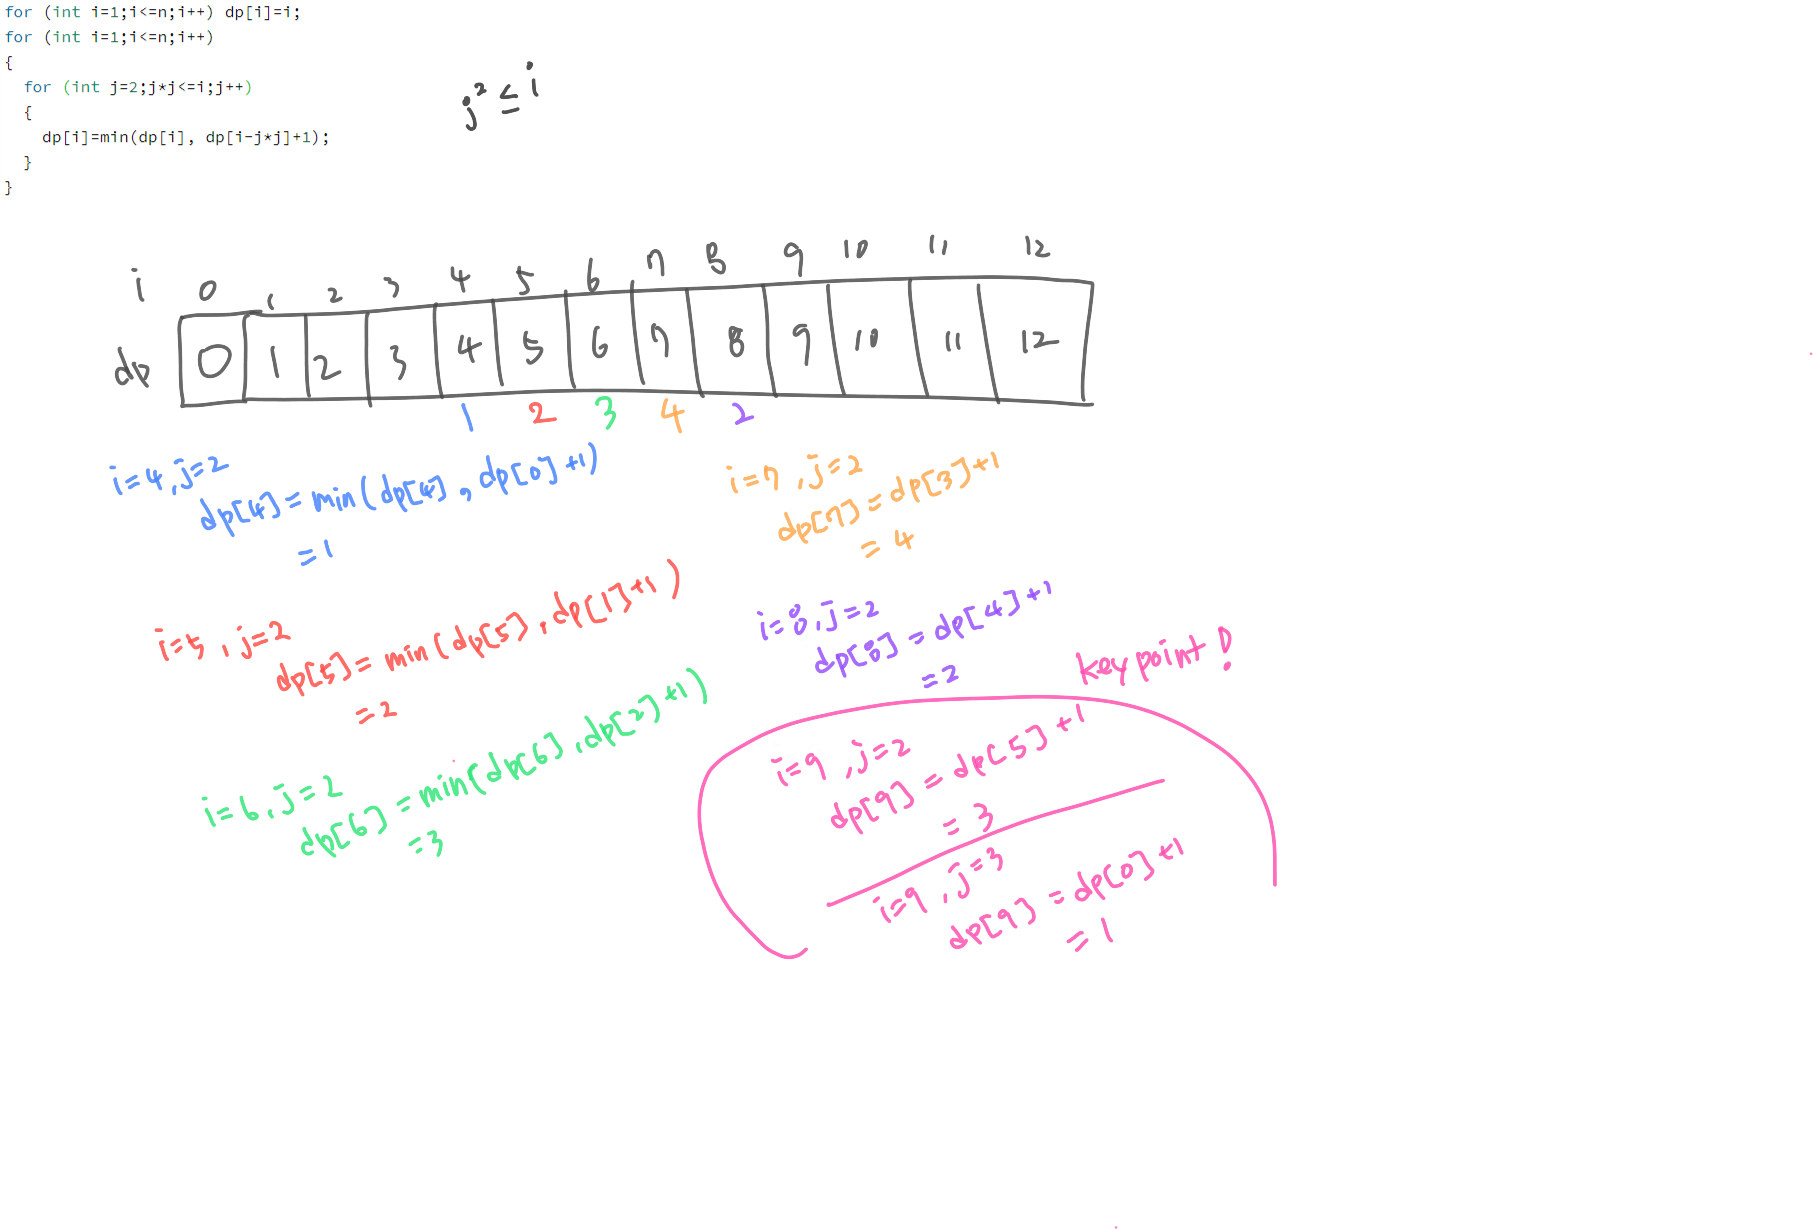 for (int i=1;i<=n;i++) dp[i]=i;
for (int i=1;i<=n;i++)
{
for (int j=2;j*j<=i;j++)
{
dp[i]=min(dp[i], dp[i-j*j]+1);
}
}
j² ≤ i
i 0 1 2 3 4 5 6 7 8 9 10 11 12
dp 0 1 2 3 4 5 6 7 8 9 10 11 12
1 2 3 4 2
i=4,j=2
dp[4]=min(dp[4],dp[0]+1)
=1
i=5,j=2
dp[5]=min(dp[5],dp[1]+1)
=2
i=6,j=2
dp[6]=min(dp[6],dp[2]+1)
=3
i=7,j=2
dp[7]=dp[3]+1
=4
i=8,j=2
dp[8]=dp[4]+1
=2
key point!
i=9,j=2
dp[9]=dp[5]+1
=3
i=9,j=3
dp[9]=dp[0]+1
=1